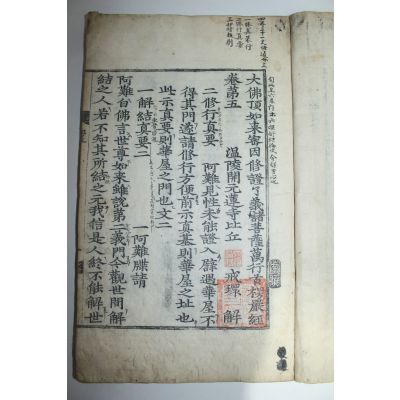 大佛頂如來密因修證了義諸菩薩萬行首楞嚴經
卷第五
溫陵開元蓮寺比丘 戒環 解
二修行真要 阿難見性未能證入譬遇華屋不
得其門遂請修行方便前示真基則華屋之址也
此示真要則華屋之門也文二
一解結真要二 阿難牒請
阿難白佛言世尊如來雖說第二義門今觀世間解
結之人若不知其所結之元我信是人終不能解世